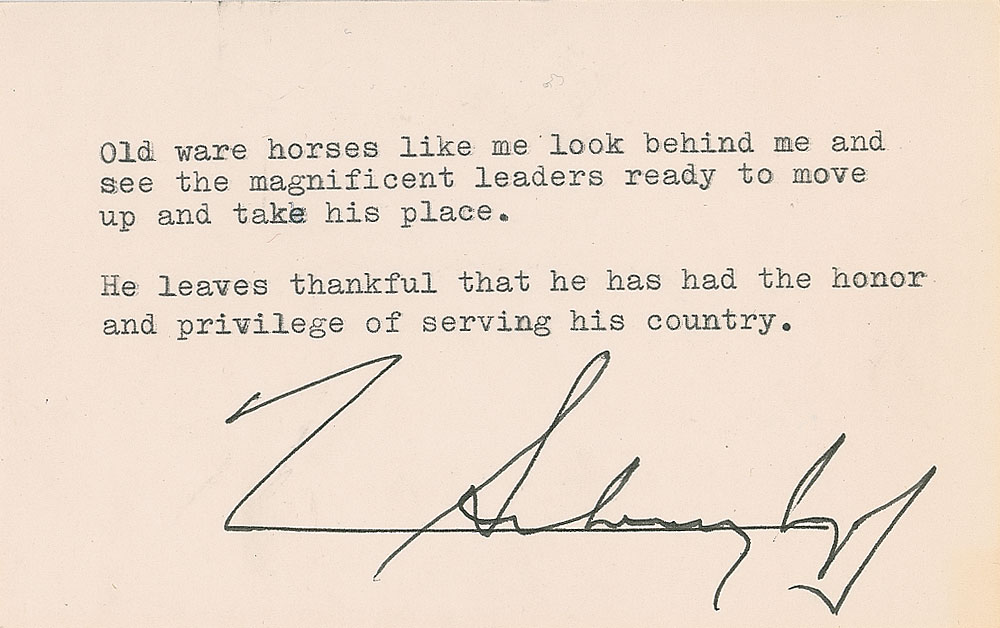 Old ware horses like me look behind me and
see the magnificent leaders ready to move
up and take his place.
He leaves thankful that he has had the honor
and privilege of serving his country.